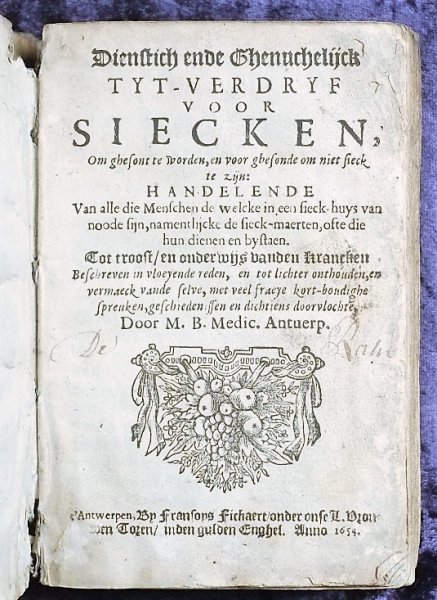 Dienstich ende Ghenuchelijck
TYT-VERDRYF
VOOR
SIECKEN,
Om ghesont te worden, en voor ghesonde om niet sieck
te zijn:
HANDELENDE
Van alle die Menschen de welcke in een sieck-huys van
noode sijn, namentlijcke de sieck-maerten, ofte die
hun dienen en bystaen.
Tot troost/ en onderwijs vanden Krancken
Beschreven in vloeyende reden, en tot lichter onthouden, en
vermaeck vande selve, met veel fraeye kort-bondighe
spreuken, geschiedenissen en dichtiens doorvlochte,
Door M. B. Medic. Antuerp.
De
t'Antwerpen, By Fransoys Fickaert/ onder onse L. Vrou
wen Toren/ inden gulden Enghel. Anno 1654.